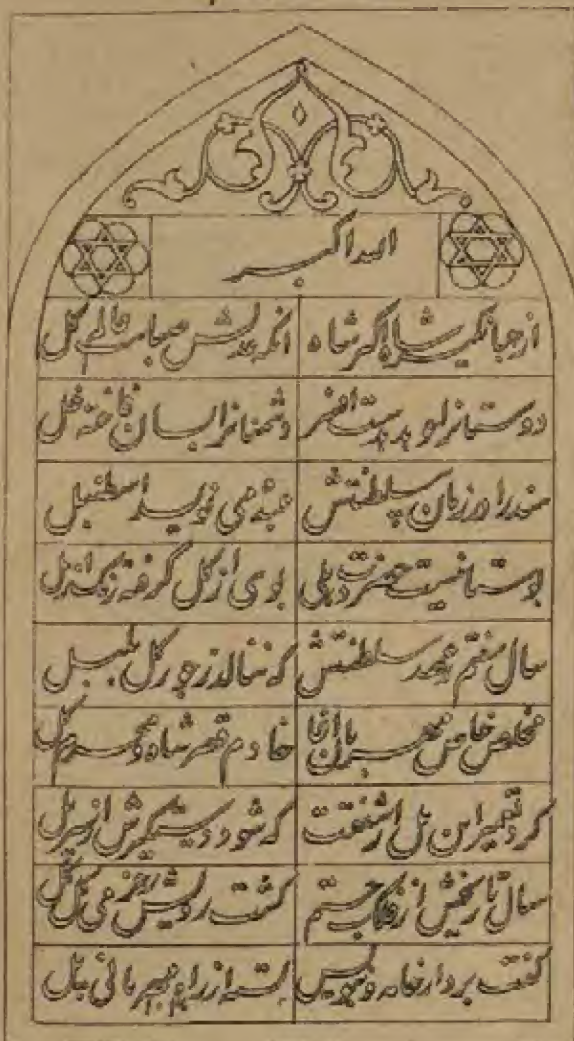 الله اکبر
از جهانگیر شاه اکبر شاه انکه عدلش صباست عالم کل
دوستانرا بود بدست افسر دشمنانرا بسان فاخته غل
هند را در زمان سلطنتش عبده می نویسد اسطنبل
بوستانیست حضرت دهلی بوی از کل کرفته
سال هفتم ز عهد سلطنتش که ننالد ز جور کل بلبل
مخلص خاص مهربان آغا خادم قصر شاه و محرم کل
کرد تعمیر این پل از شفقت که شود دستکیرش از سر پل
سال تاریخش از فلک جستم کشت رویش ز خرمی کل کل
کفت بردار خامه و بنویس بسته از راه مهربانی پل